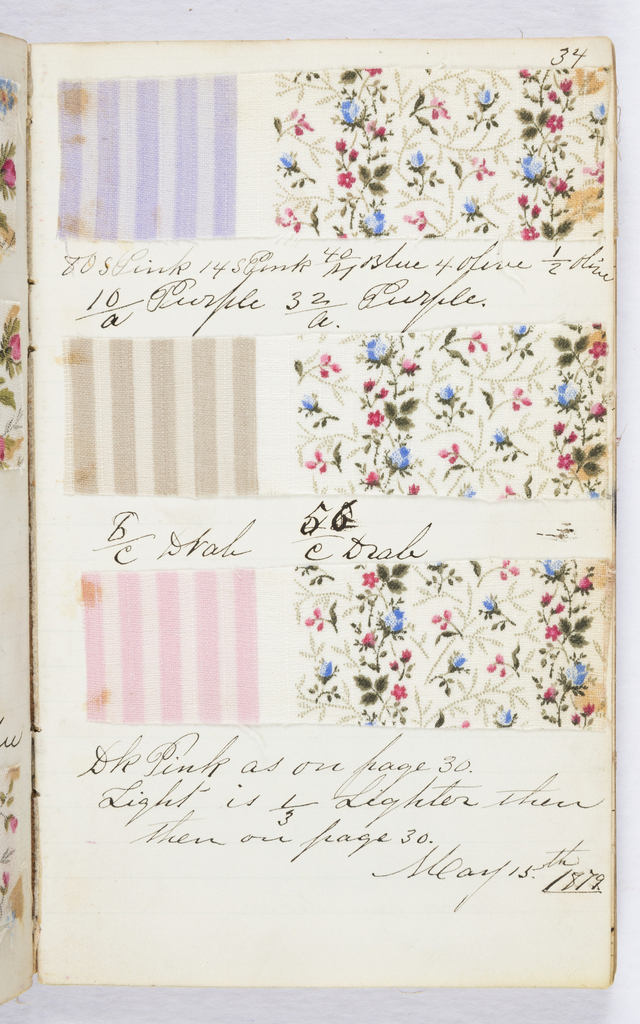 34
80 S Pink 14 S Pink 40/21 Blue 4 Olive 1/2 Olive
10/a Purple 32/a. Purple.
6/c Drab 56/c Drab
Dk Pink as on page 30.
Light is 1/3 Lighter then
then on page 30.
May 15th 1879